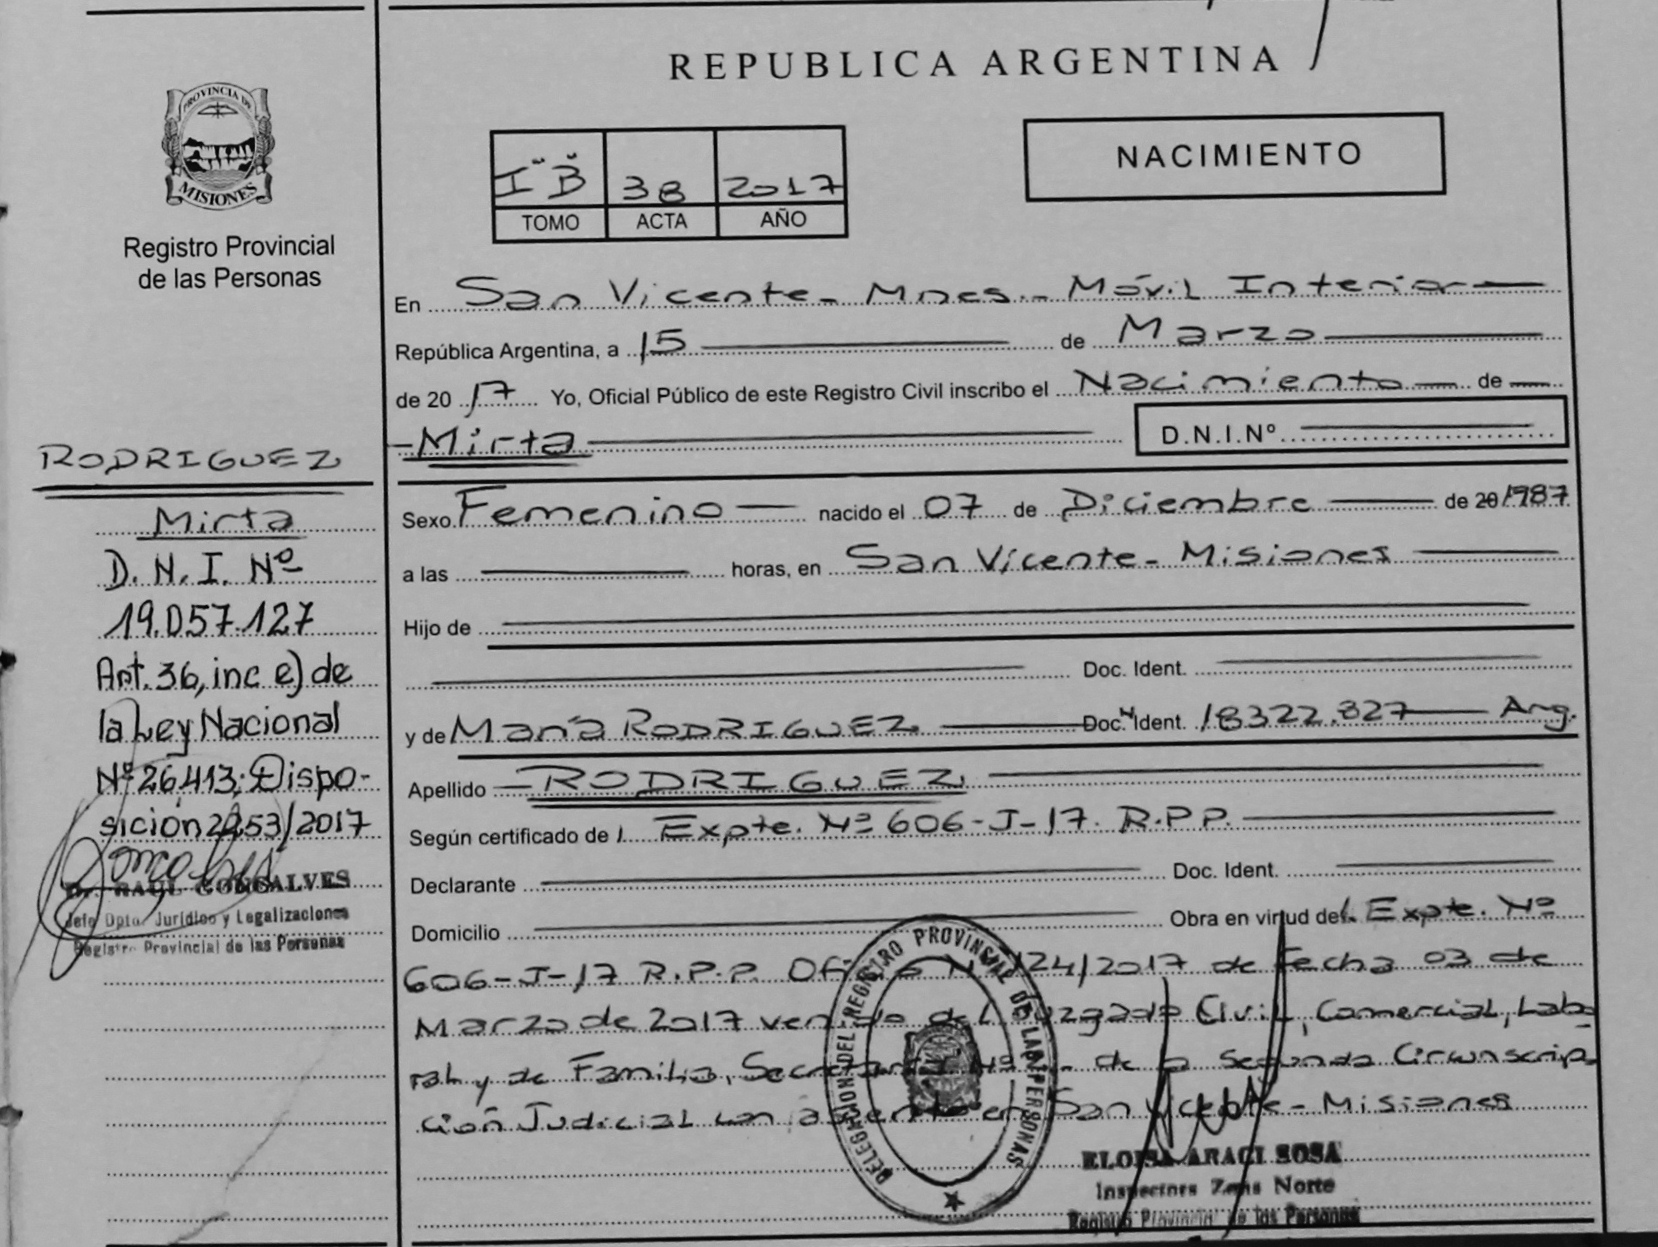 REPUBLICA ARGENTINA
PROVINCIA DE
MISIONES
Registro Provincial
de las Personas
I B 38 2017
TOMO ACTA AÑO
NACIMIENTO
En San Vicente - Mnes.- Móvil Interior
República Argentina, a 15 de Marzo
de 2017 Yo, Oficial Público de este Registro Civil inscribo el Nacimiento de
Mirta D.N.I.Nº
Sexo Femenino nacido el 07 de Diciembre de 20 1987
a las horas, en San Vicente - Misiones
Hijo de
Doc. Ident.
y de María RODRIGUEZ Doc. Ident. 18322.827 Arg.
Apellido RODRIGUEZ
Según certificado de l Expte. Nº 606-J-17. R.P.P.
Declarante Doc. Ident.
Domicilio Obra en virtud del Expte. Nº
606-J-17 R.P.P. 124/2017 de fecha 03 de
Marzo de 2017 del Juzgado Civil, Comercial, Labo
ral y de Familia, de Segunda Circunscrip
ción Judicial con en San Vicente - Misiones
RODRIGUEZ
Mirta
D.N.I. Nº
19.057.127
Art. 36, inc e) de
la Ley Nacional
Nº 26.413; Dispo-
sición 2253/2017
RAUL GONCALVES
Jefe Dpto. Jurídico y Legalizaciones
Registro Provincial de las Personas
DELEGACION DEL REGISTRO PROVINCIAL DE LAS PERSONAS
ELOISA ARACI SOSA
Inspectora Zona Norte
Registro Provincial de las Personas